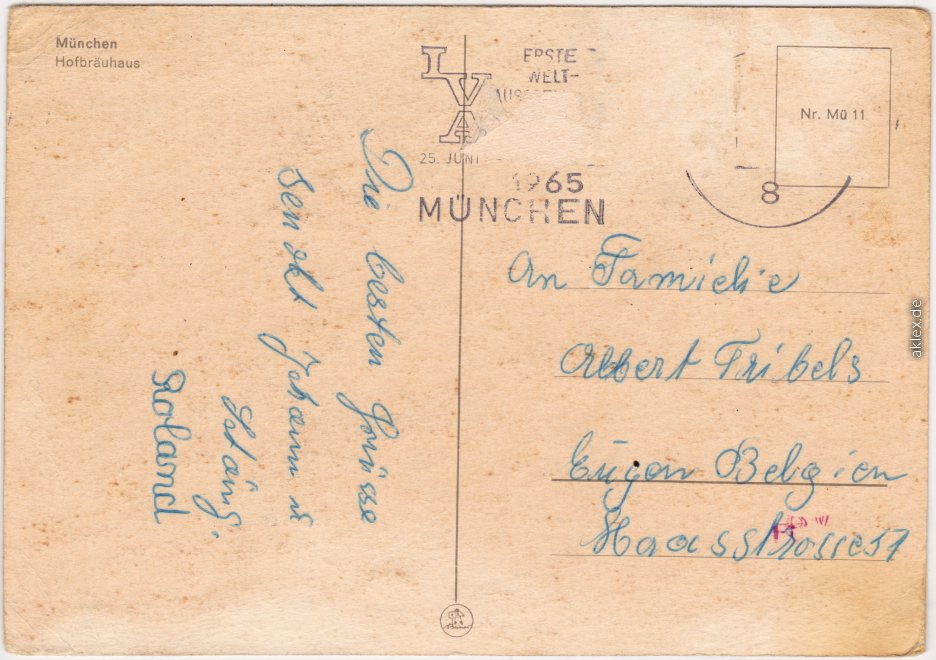 München
Hofbräuhaus
IVA
ERSTE
WELT-
25. JUNI
1965
MÜNCHEN
Nr. Mü 11
8
Die besten Grüsse
sendt Johann u
Roland
An Familie
Albert Fribels
Eugen Belgien
Haasstrasse 51
aklex.de